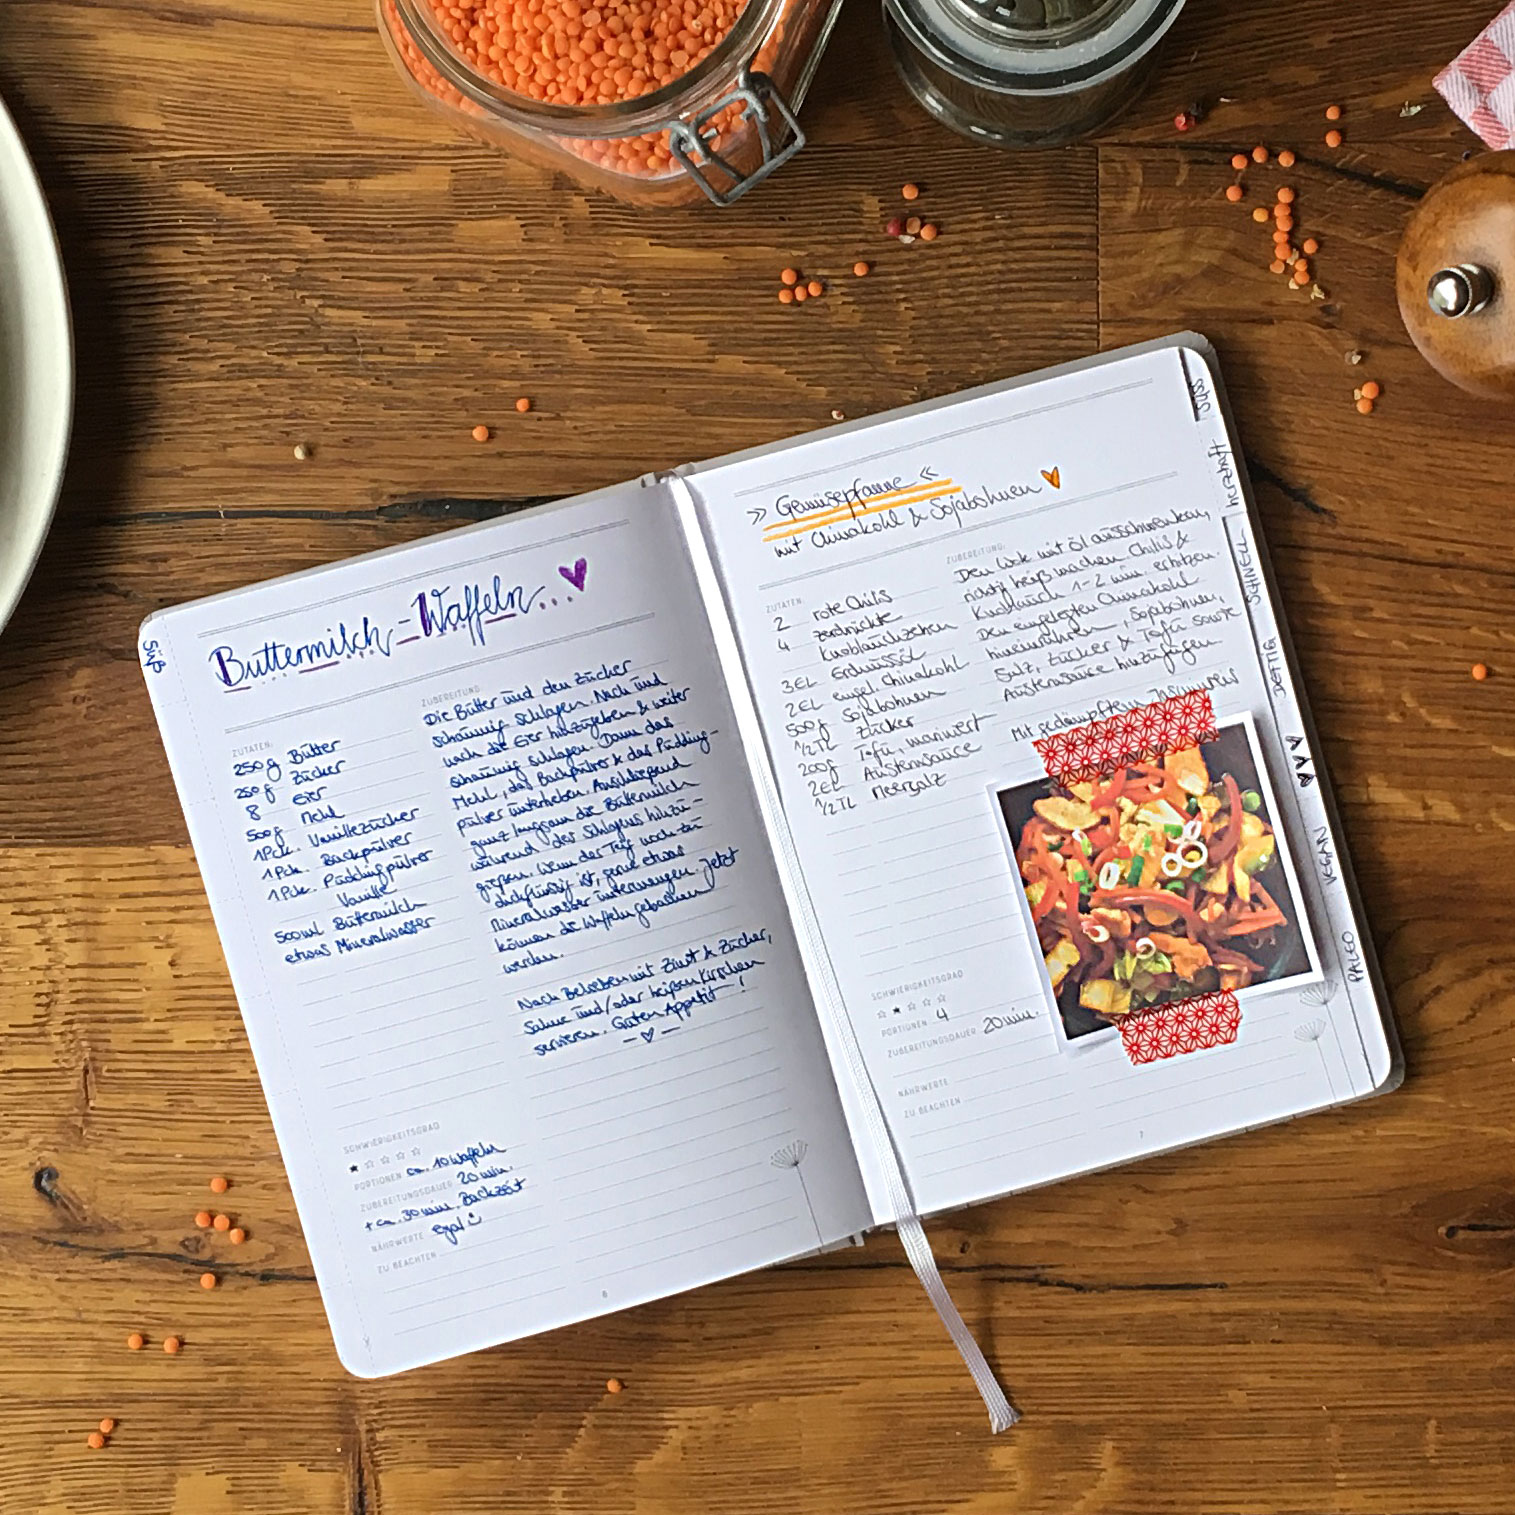 Süß
Buttermilch-Waffeln...
ZUTATEN:
250g Butter
250g Zucker
8 Eier
500g Mehl
1Pck. Vanillezucker
1Pck. Backpulver
1Pck. Puddingpulver
Vanille
500ml Buttermilch
etwas Mineralwasser
ZUBEREITUNG
Die Butter und den Zucker
schaumig schlagen. Nach und
nach die Eier hinzugeben & weiter
schaumig schlagen. Dann das
Mehl, das Backpulver & das Pudding-
pulver unterheben. Anschließend
ganz langsam die Buttermilch
während des Schlagens hinzu-
gießen. Wenn der Teig noch zu
dickflüssig ist, gerne etwas
Mineralwasser untermengen. Jetzt
können die Waffeln gebacken
werden.
Nach Belieben mit Zimt & Zucker,
Sahne und/oder heißen Kirschen
servieren. Guten Appetit!
SCHWIERIGKEITSGRAD
PORTIONEN ca. 10 Waffeln
ZUBEREITUNGSDAUER 20 min.
+ ca. 30 min. Backzeit
NÄHRWERTE egal
ZU BEACHTEN
6
» Gemüsepfanne «
mit Chinakohl & Sojabohnen
ZUTATEN:
2 rote Chilis
4 zerdrückte
Knoblauchzehen
3EL Erdnussöl
2EL eingel. Chinakohl
500g Sojabohnen
1/2TL Zucker
200g Tofu, mariniert
2EL Austernsauce
1/2TL Meersalz
ZUBEREITUNG:
Den Wok mit Öl ausschwenken,
richtig heiß machen Chilis &
Knoblauch 1-2 min. erhitzen.
Den eingelegten Chinakohl
hineinrühren, Sojabohnen,
Salz, Zucker & Tofu sowie
Austernsauce hinzufügen
Mit gedämpftem Jasminreis
SCHWIERIGKEITSGRAD
PORTIONEN 4
ZUBEREITUNGSDAUER 20min.
NÄHRWERTE
ZU BEACHTEN
7
SÜSS
herzhaft
SCHNELL
DEFTIG
VEGAN
PALEO